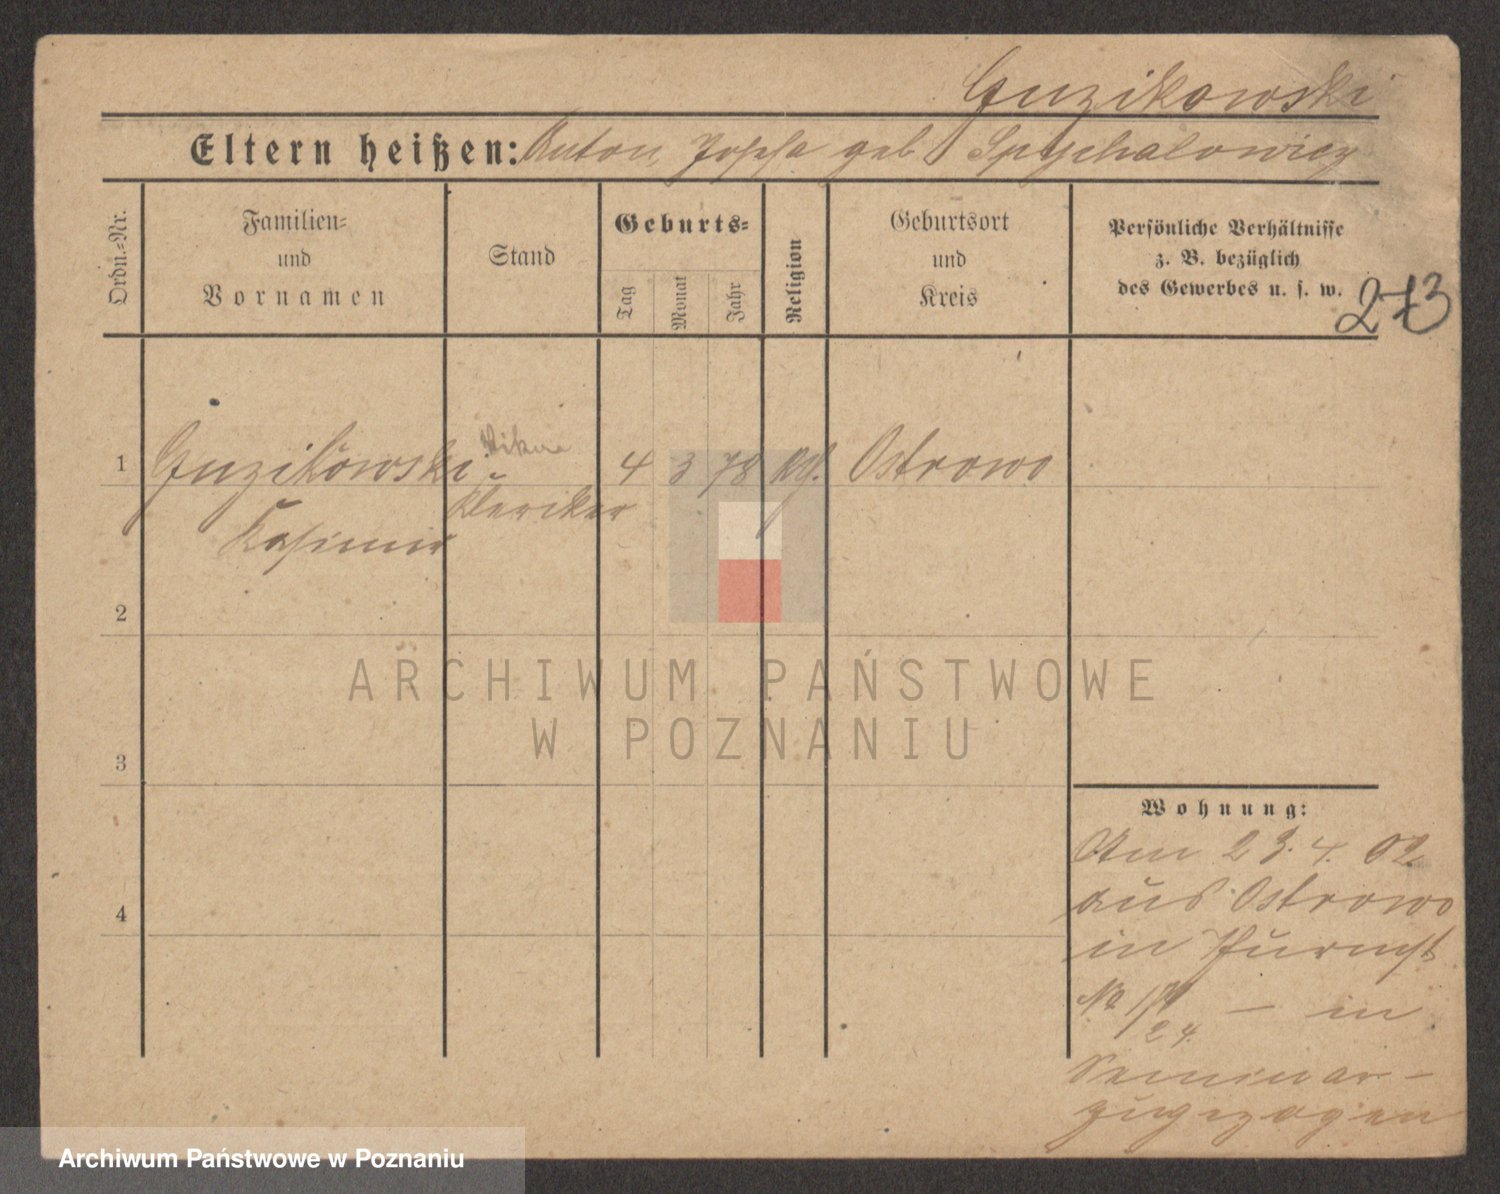 Guzikowski
Eltern heißen: Anton, Josefa geb Spychalowicz
Ordn.-Nr.
Familien-
und
Vornamen
Stand
Geburts-
Tag
Monat
Jahr
Religion
Geburtsort
und
Kreis
Persönliche Verhältnisse
z. B. bezüglich
des Gewerbes u. s. w.
273
1
Guzikowski
Kasimir
Vikar
Kleriker
4 3 78
Ostrowo
2
3
4
ARCHIWUM PAŃSTWOWE
W POZNANIU
Wohnung:
Am 23.4.02
aus Ostrowo
in
No – in
24.
Seminar-
zugezogen
Archiwum Państwowe w Poznaniu